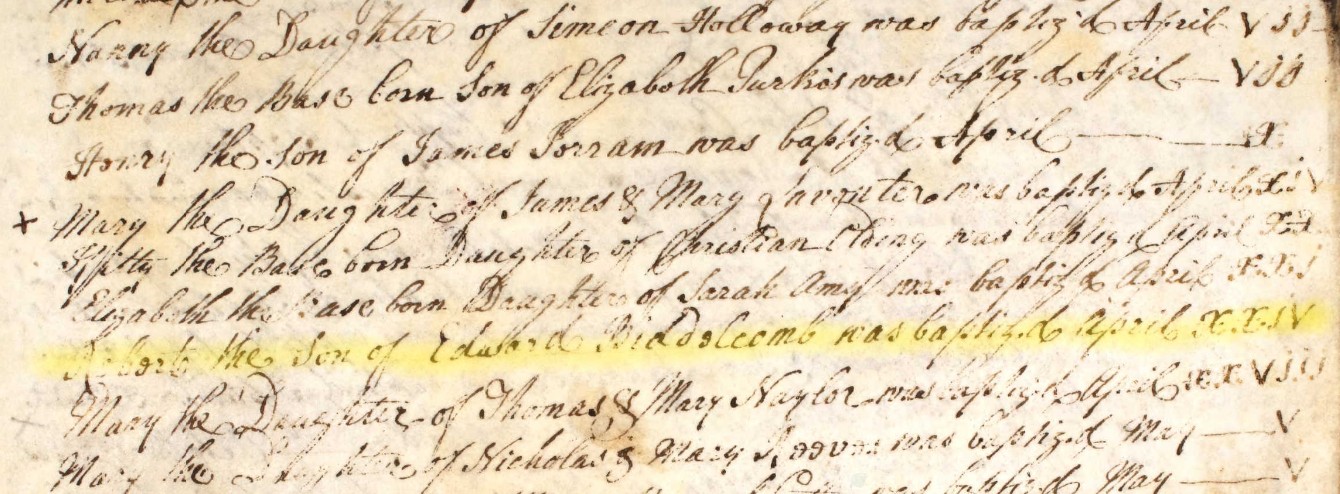 Nanny the Daughter of Simeon Holloway was baptiz'd April VII
Thomas the Base born Son of Elizabeth Turkis was baptiz.d April — VII
Henry the Son of James Jorram was baptiz'd April — X
x Mary the Daughter of James & Mary was baptiz'd April
Kitty the Base born Daughter of Christian was baptiz'd April
Elizabeth the Base born Daughter of Sarah Amy was baptiz'd April XXI
Robert the Son of Edward Biddelcomb was baptiz.d April XXIV
Mary the Daughter of Thomas & Mary Naylor was baptiz'd April XXVIII
Mary the Daughter of Nicholas & Mary Reeves was baptiz.d May — V
was baptiz'd May — V